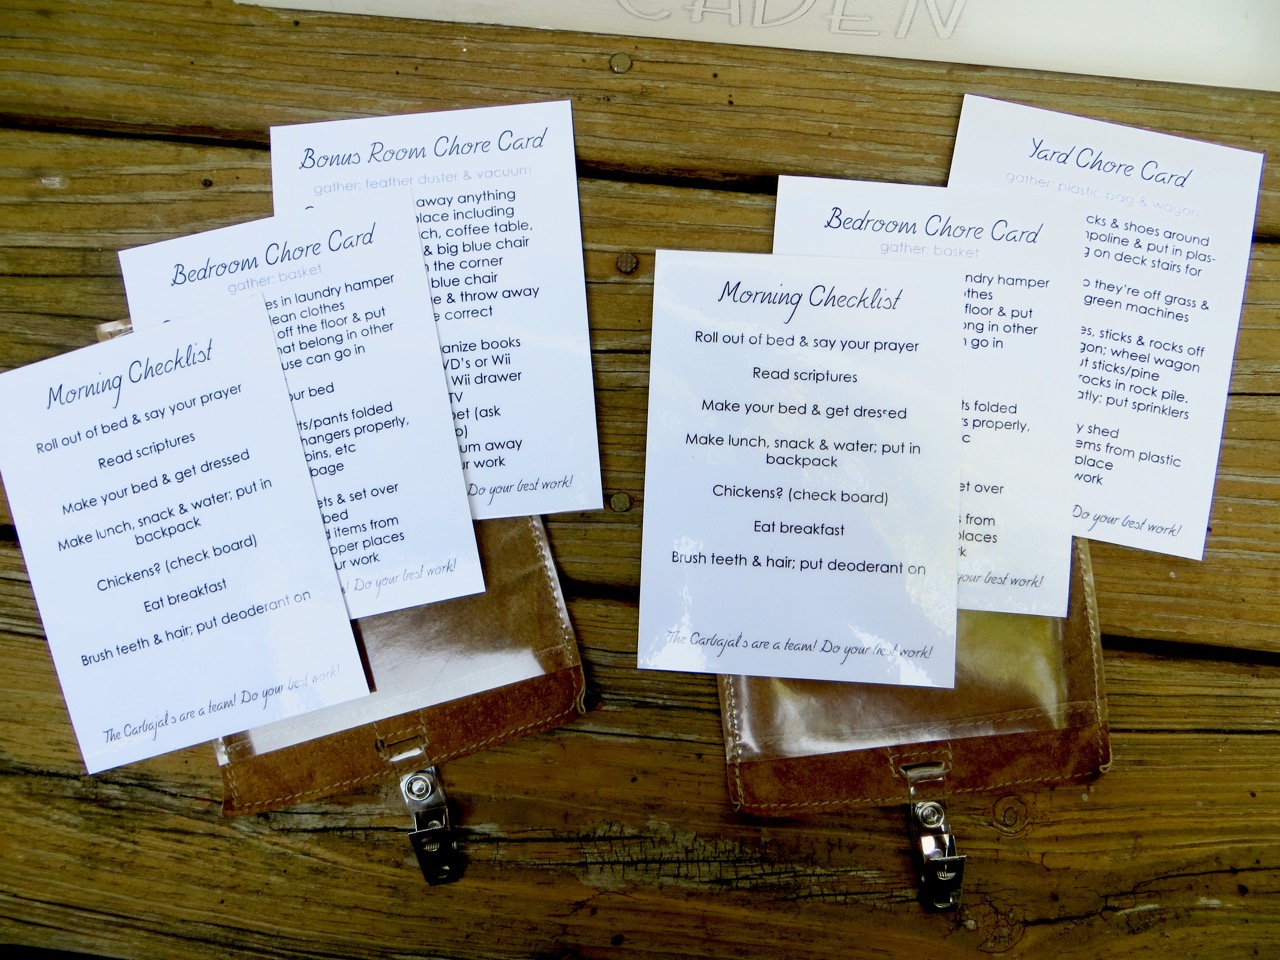 CADEN
Bonus Room Chore Card
gather: feather duster & vacuum
away anything
place including
ch, coffee table,
& big blue chair
the corner
blue chair
e & throw away
e correct
anize books
VD's or Wii
Wii drawer
TV
et (ask
um away
ur work
Do your best work!
Bedroom Chore Card
gather: basket
es in laundry hamper
ean clothes
off the floor & put
hat belong in other
use can go in
our bed
ts/pants folded
hangers properly,
bins, etc
bage
ets & set over
bed
d items from
oper places
ur work
! Do your best work!
Morning Checklist
Roll out of bed & say your prayer
Read scriptures
Make your bed & get dressed
Make lunch, snack & water; put in
backpack
Chickens? (check board)
Eat breakfast
Brush teeth & hair; put deoderant on
The Carbajal's are a team! Do your best work!
Yard Chore Card
gather: plastic bag & wagon
cks & shoes around
poline & put in plas-
g on deck stairs for
o they're off grass &
green machines
es, sticks & rocks off
gon; wheel wagon
ut sticks/pine
rocks in rock pile.
atly; put sprinklers
y shed
ems from plastic
place
work
Do your best work!
Bedroom Chore Card
gather: basket
ndry hamper
othes
floor & put
ong in other
n go in
ts folded
s properly,
c
et over
s from
places
rk
your best work!
Morning Checklist
Roll out of bed & say your prayer
Read scriptures
Make your bed & get dressed
Make lunch, snack & water; put in
backpack
Chickens? (check board)
Eat breakfast
Brush teeth & hair; put deoderant on
The Carbajal's are a team! Do your best work!